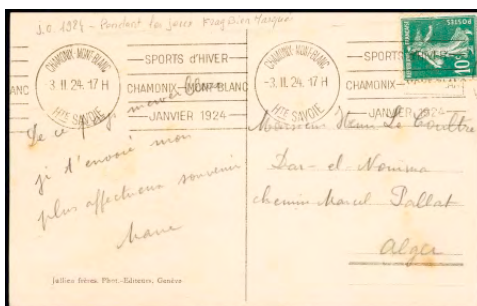 J.O. 1924 - Pendant les jeux
CHAMONIX MONT-BLANC
3. II 24. 17 H
HTE SAVOIE
SPORTS d'HIVER
CHAMONIX-MONT-BLANC
JANVIER 1924
CHAMONIX MONT-BLANC
-3. II 24. 17 H
HTE SAVOIE
SPORTS
CHAMONIX
JANVIER 1924
POSTES
10c
De ce pays merveilleux
je t'envoie mon
plus affectueux souvenir
Monsieur Henri Le Coultre
Dar-el-
chemin Marcel Pallat
Alger
Jullien frères, Phot.-Editeurs, Genève